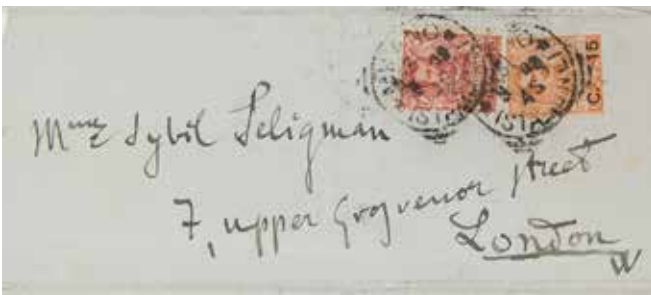 C. 15
Mme Sybil Seligman
7, upper Grosvenor street
London
W